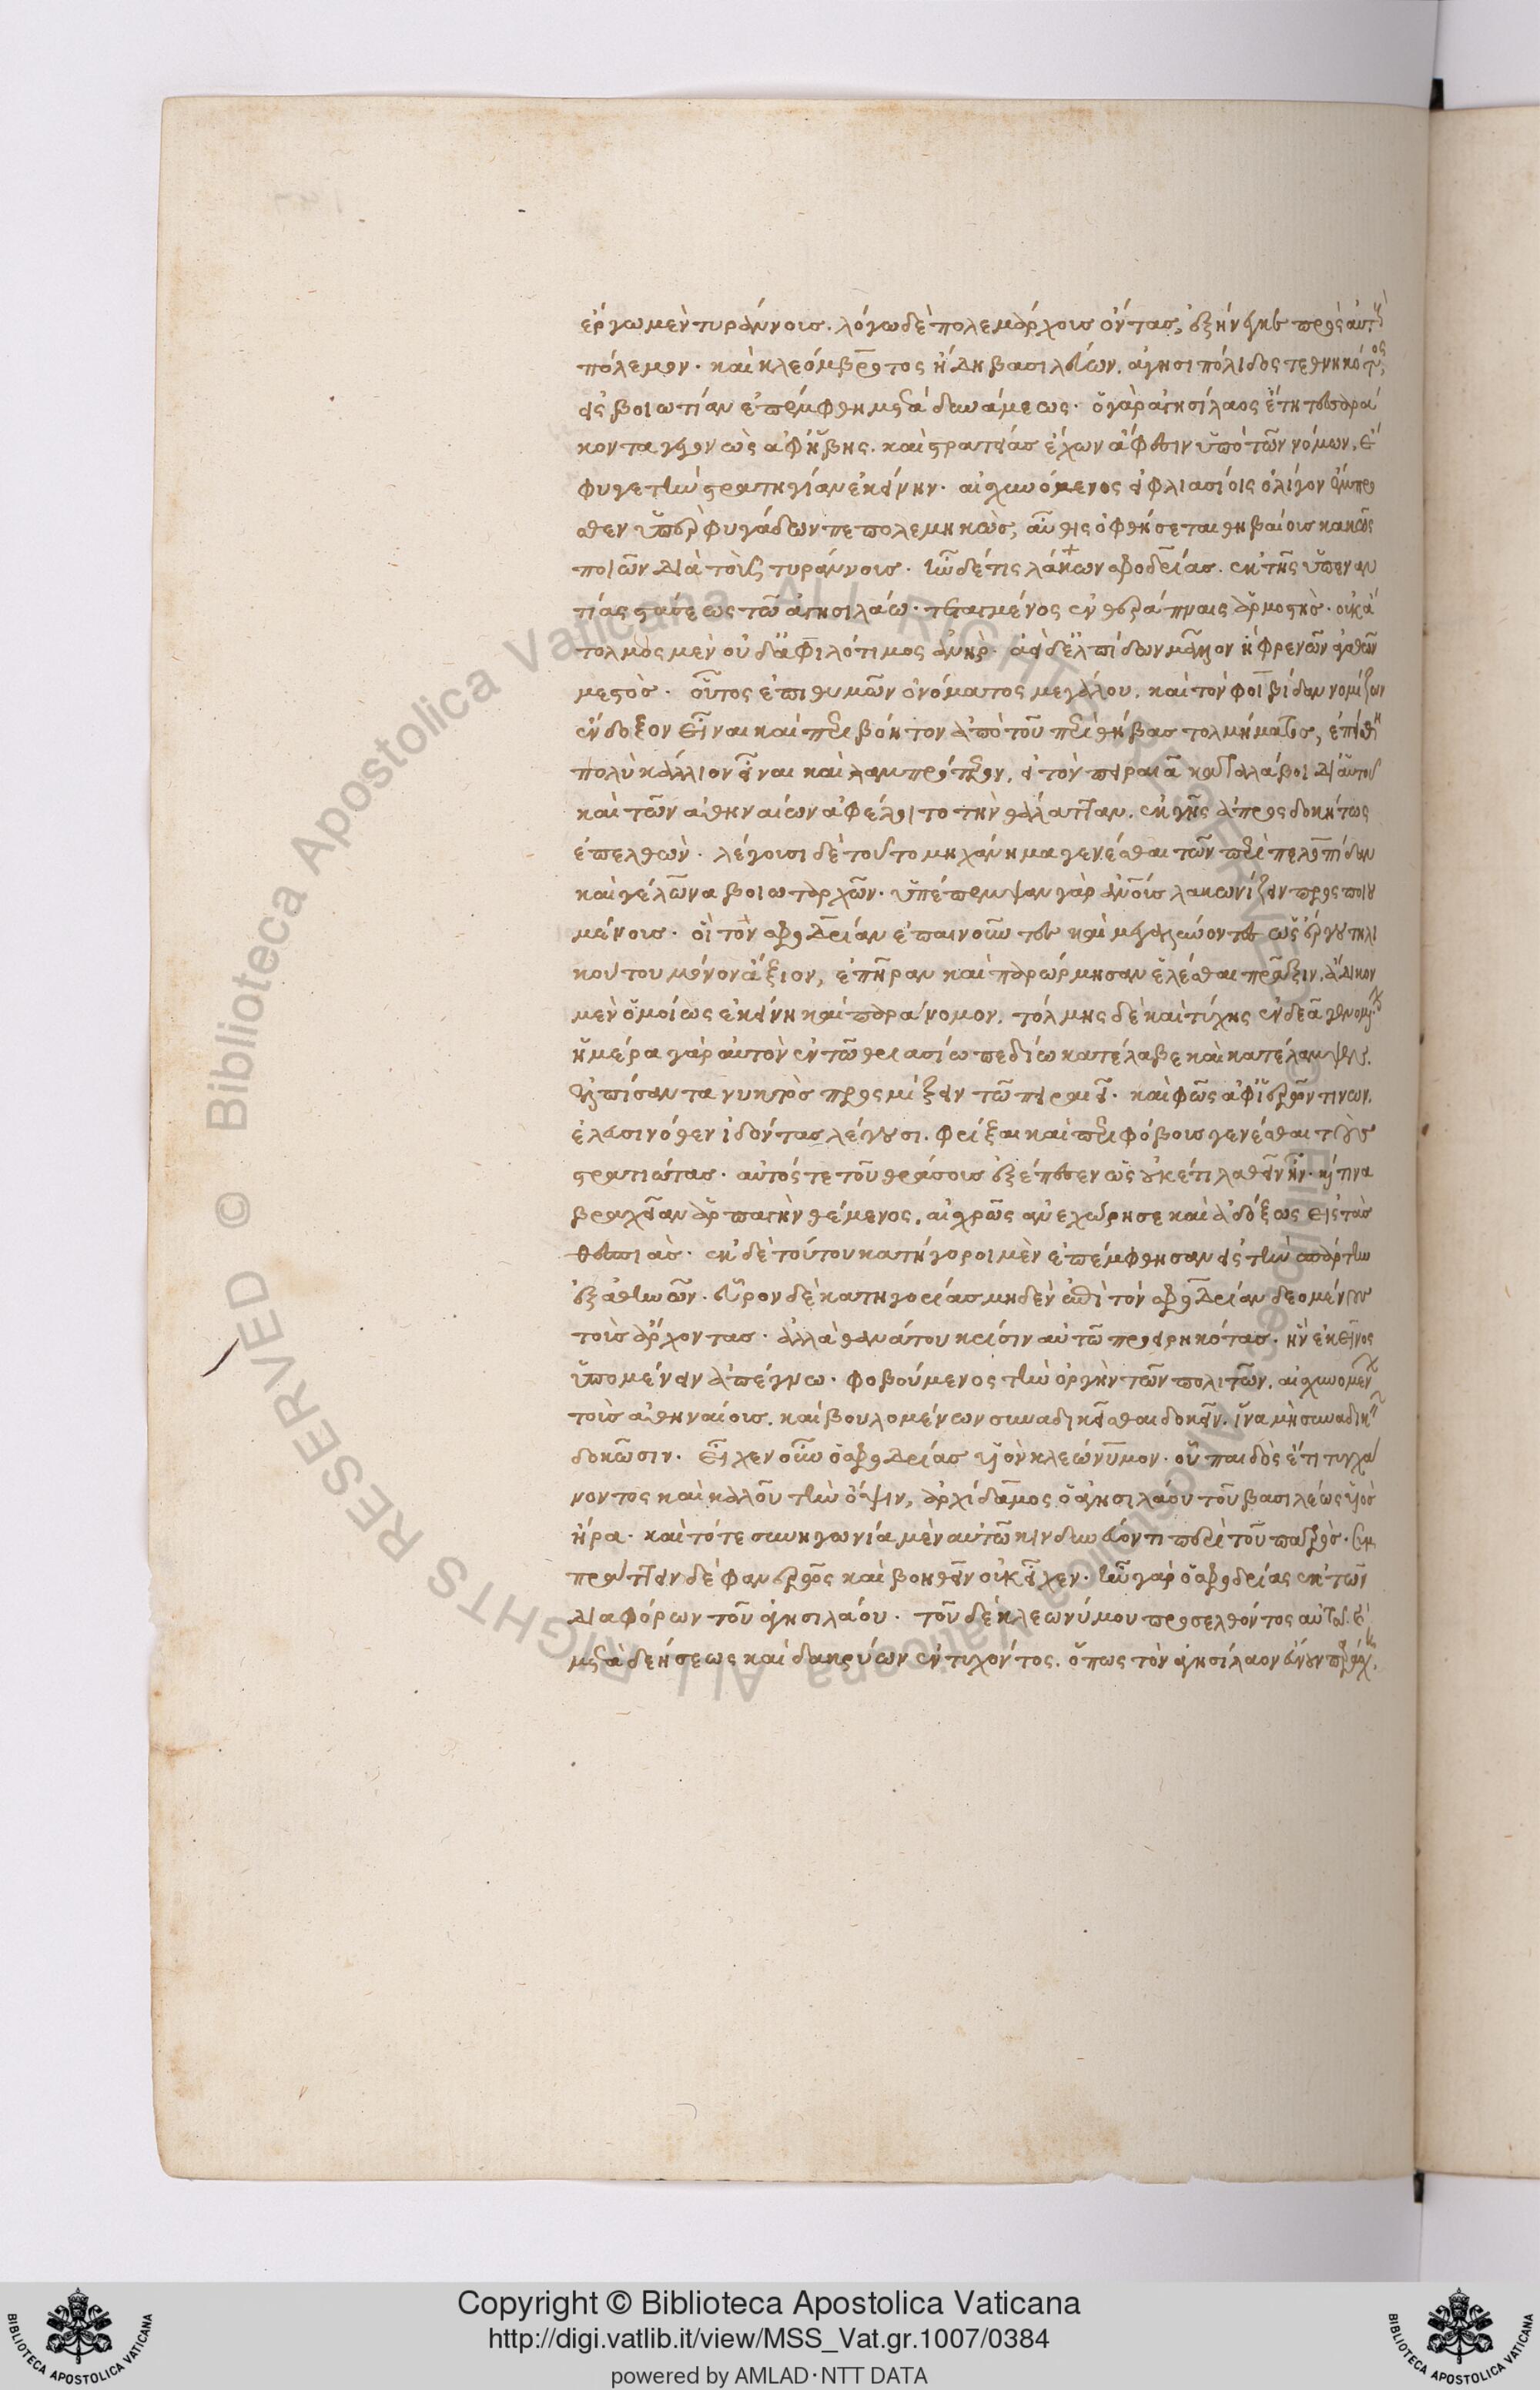 ἔργω μὲν τυράννους. λόγω δὲ πολεμάρχους ὄντας, ἐξήνεγκε πρὸς αὐτοὺς
πόλεμον. καὶ κλεόμβροτος ἤδη βασιλεύων. ἀγησιπόλιδος τεθνηκότος,
εἰς βοιωτίαν ἐπέμφθη μετὰ δυνάμεως. ὁ γὰρ ἀγησίλαος ἔτη τεσσαρά
κοντα γεγονὼς ἀφ' ἥβης. καὶ στρατείας ἔχων ἄφεσιν ὑπὸ τῶν νόμων. ἔ
φυγε τὴν στρατηγίαν ἐκείνην. αἰσχυνόμενος εἰ φλιασίοις ὀλίγον ἔμπρο
σθεν ὑπὲρ φυγάδων πεπολεμηκὼς, αὖθις ὀφθήσεται θηβαίους κακῶς
ποιῶν διὰ τοὺς τυράννους. ἦν δέ τις λάκων σφοδρίας. ἐκ τῆς ὑπεναν
τίας στάσεως τῶ ἀγησιλάω. τεταγμένος ἐν θεσπιαῖς ἁρμοστὴς. οὐκ ἄ
τολμος μὲν οὐδ' ἀφιλότιμος ἀνὴρ. ἀεὶ δ' ἐλπίδων μᾶλλον ἢ φρενῶν ἀγαθῶν
μεστὸς. οὗτος ἐπιθυμῶν ὀνόματος μεγάλου. καὶ τὸν φοιβίδαν νομίζων
ἔνδοξον εἶναι καὶ περιβόητον ἀπὸ τοῦ περὶ θήβας τολμήματος, ἐπείσθη
πολὺ κάλλιον εἶναι καὶ λαμπρότερον. εἰ τὸν πειραιᾶ καταλάβοι δι' αὑτοῦ
καὶ τῶν ἀθηναίων ἀφέλοιτο τὴν θάλατταν. ἐκ γῆς ἀπροσδοκήτως
ἐπελθὼν. λέγουσι δὲ τοῦτο μηχάνημα γενέσθαι τῶν περὶ πελοπίδαν
καὶ γέλωνα βοιωταρχῶν. ὑπέπεμψαν γὰρ ἀνθρώπους λακωνίζειν προσποιου
μένους. οἳ τὸν σφοδρίαν ἐπαινοῦντες καὶ μεγαλύνοντες ὡς ἔργου τηλι
κούτου μόνον ἄξιον, ἐπῆραν καὶ παρώρμησαν ἑλέσθαι πρᾶξιν. ἄδικον
μὲν ὁμοίως ἐκείνη καὶ παράνομον. τόλμης δὲ καὶ τύχης ἐνδεᾶ γενομένην
ἡμέρα γὰρ αὐτὸν ἐν τῶ θριασίω πεδίω κατέλαβε καὶ κατέλαμψεν.
ἐλπίσαντα νυκτὸς προσμίξειν τῶ πειραιεῖ. καὶ φῶς ἀφ' ἱερῶν τινων.
ἐλευσινόθεν ἰδόντας λέγουσι. φρίξαι καὶ περιφόβους γενέσθαι τοὺς
στρατιώτας. αὐτός τε τοῦ θράσους ἐξέπεσεν ὡς οὐκέτι λαθεῖν ἦν. καί τινα
βραχεῖαν ἁρπαγὴν θέμενος. αἰσχρῶς ἀνεχώρησε καὶ ἀδόξως εἰς τὰς
θεσπιάς. ἐκ δὲ τούτου κατήγοροι μὲν ἐπέμφθησαν εἰς τὴν σπάρτην
ἐξ ἀθηνῶν. εὗρον δὲ κατηγορίας μηδὲν ἐπὶ τὸν σφοδρίαν δεομένους
τοὺς ἄρχοντας. ἀλλὰ θανάτου κρίσιν αὐτῶ προειρηκότας. ἣν ἐκεῖνος
ὑπομένειν ἀπέγνω. φοβούμενος τὴν ὀργὴν τῶν πολιτῶν. αἰσχυνομένων
τοὺς ἀθηναίους. καὶ βουλομένων συναδικεῖσθαι δοκεῖν. ἵνα μὴ συναδικεῖν
δοκῶσιν. εἶχεν οὖν ὁ σφοδρίας υἱὸν κλεώνυμον. οὗ παιδὸς ἔτι τυγχά
νοντος καὶ καλοῦ τὴν ὄψιν, ἀρχίδαμος ὁ ἀγησιλάου τοῦ βασιλέως υἱὸς
ἤρα. καὶ τότε συνηγωνία μὲν αὐτῶ κινδυνεύοντι περὶ τοῦ πατρὸς. συμ
πράττειν δὲ φανερῶς καὶ βοηθεῖν οὐκ εἶχεν. ἦν γὰρ ὁ σφοδρίας ἐκ τῶν
διαφόρων τοῦ ἀγησιλάου. τοῦ δὲ κλεωνύμου προσελθόντος αὐτῶ. καὶ
μετὰ δεήσεως καὶ δακρύων ἐντυχόντος. ὅπως τὸν ἀγησίλαον εὔνουν παράσχ
Copyright © Biblioteca Apostolica Vaticana
http://digi.vatlib.it/view/MSS_Vat.gr.1007/0384
powered by AMLAD·NTT DATA